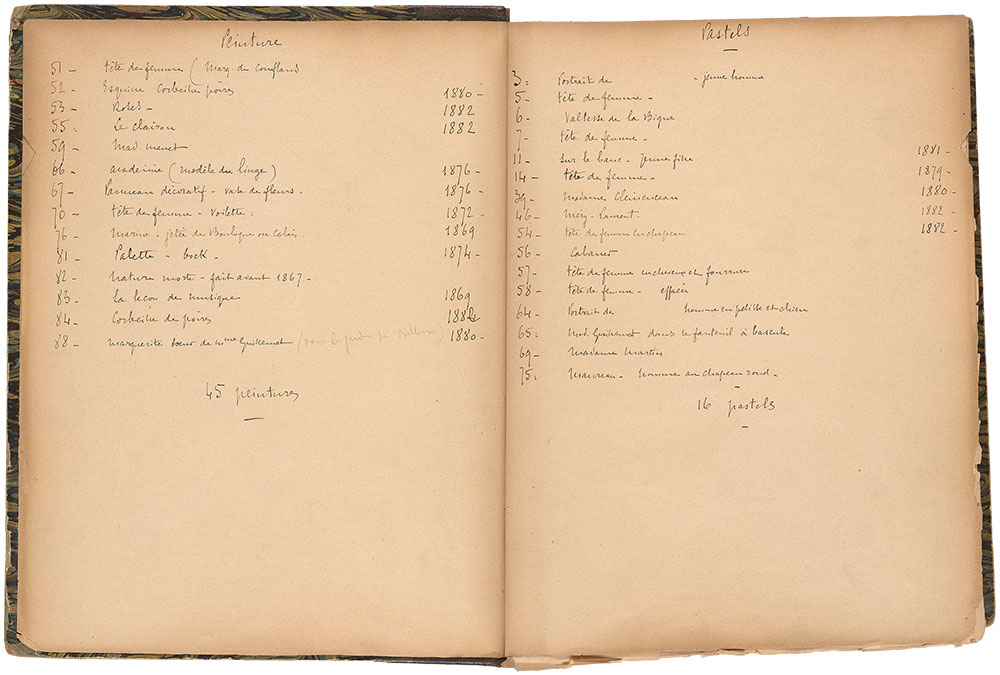 Peinture
51 - tête de femme (Marq. du Conflans
52 - Esquisse Corbeille poires 1880 -
53 - Roses - 1882
55 : Le clairon 1882
59 - Mad. Manet
66 - académie (modèle du linge) 1876 -
67 - Panneau décoratif - vase de fleurs - 1876 -
70 - tête de femme - voilette : 1872 -
76 - Marine - jetée de Boulogne ou Calais 1869
81 - Palette - bock - 1874 -
82 - nature morte - fait avant 1867 -
83 - La leçon de musique 1869
84 - Corbeille de poires 1882
88 - Marguerite soeur de Mme Guillemet (dans le jardin de Bellevue) 1880 -
45 peintures
Pastels
3 : Portrait de - jeune homme
5 - tête de femme -
6 - Valtesse de la Bigne
7 - tête de femme -
11 - sur le banc - jeune fille 1881 -
14 - tête de femme - 1879 -
39 - Madame Clemenceau 1880 -
46 - Méry Laurent 1882 -
54 - tête de femme en chapeau 1882 -
56 - Cabaner
57 - tête de femme en cheveux et fourrure
58 - tête de femme - effacée
64 - Portrait de homme en pelisse et chien
65 : Mad. Guillemet dans le fauteuil à bascule
69 - Madame Martin
75 : Mauzeau - homme au chapeau rond -
16 pastels